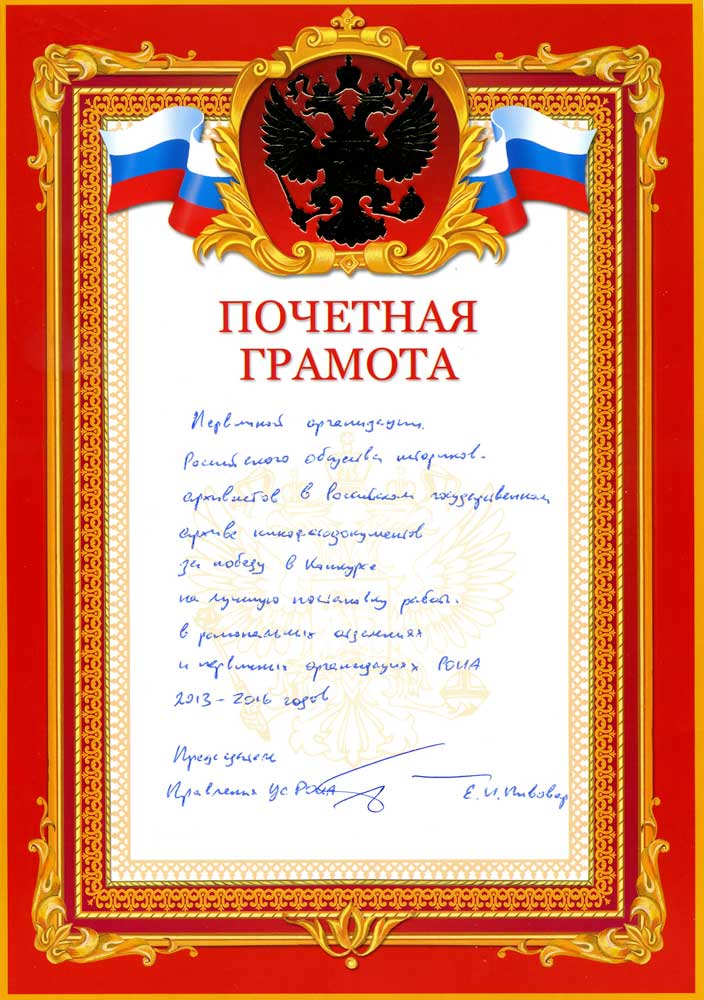 ПОЧЕТНАЯ
ГРАМОТА
Первичной организации
Российского общества историков-
архивистов в Российском государственном
архиве кинофотодокументов
за победу в Конкурсе
на лучшую постановку работы
в региональных отделениях
и первичных организациях РОИА
2013-2016 годов
Председатель
Правления ЦС РОИА Е.И. Пивовар